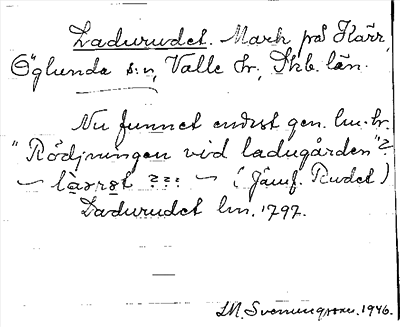 Ladurudet. Mark på Kärr,
Öglunda s:n, Valle hr, Skb. län.
Nu funnet endast gen. lm. hr.
"Rödjningen vid ladugården"?
(Jämf. Rudet)
Ladurudet lm. 1797.
M. Svenungsson. 1946.